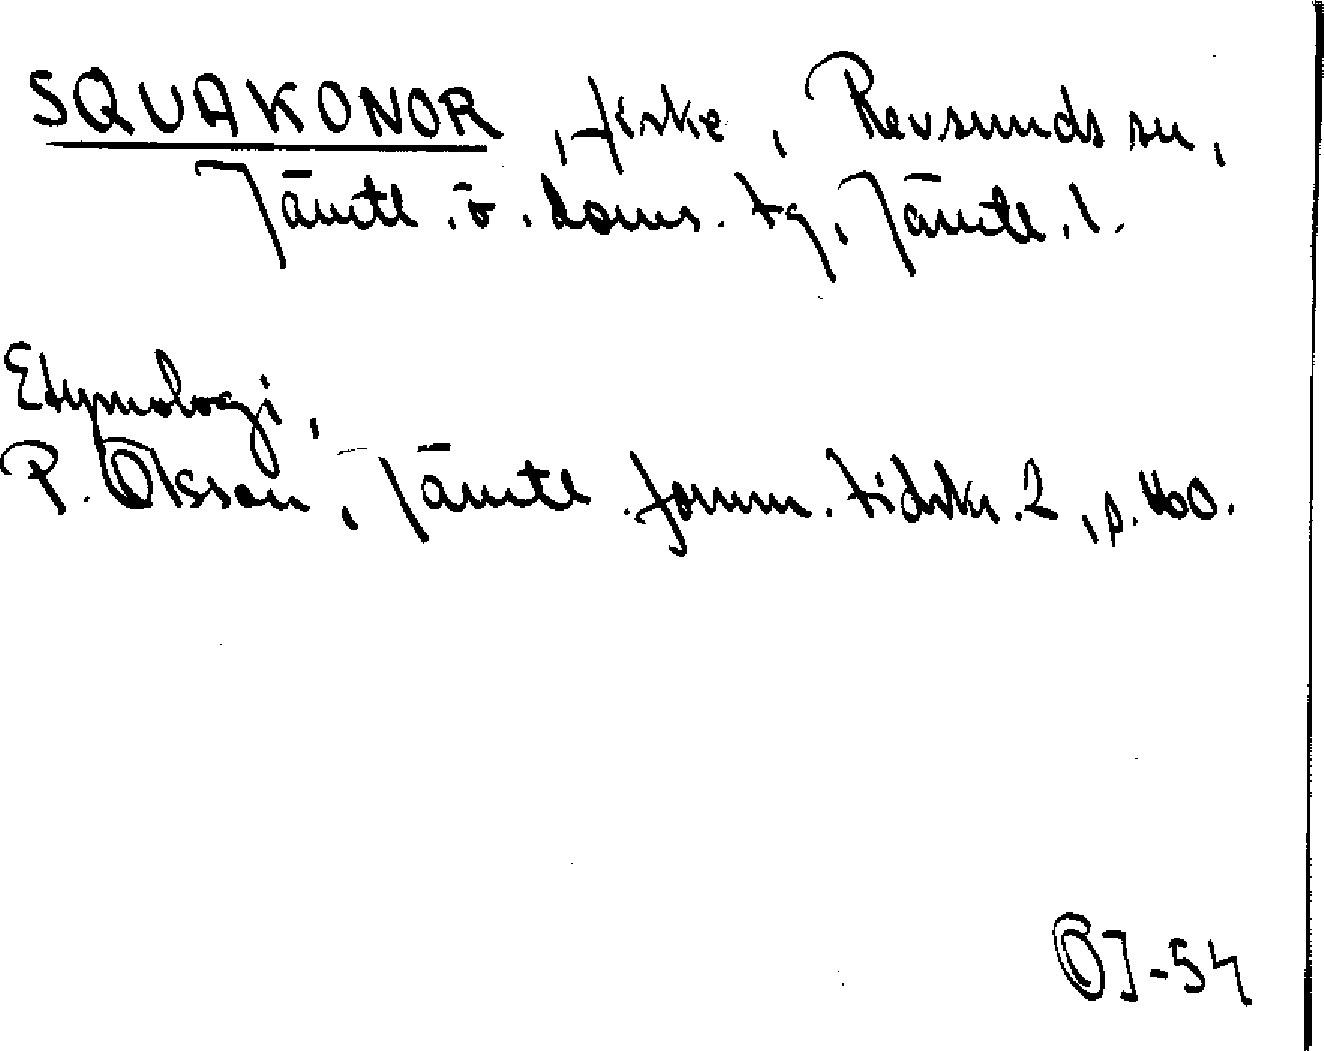 SQUAKONOR, fiske, Revsunds sn,
Jämtl. ö. doms. tg, Jämtl. l.
Etymologi,
P. Olsson, Jämtl. fornm. tidskr. 2, s. 160.
OJ-54